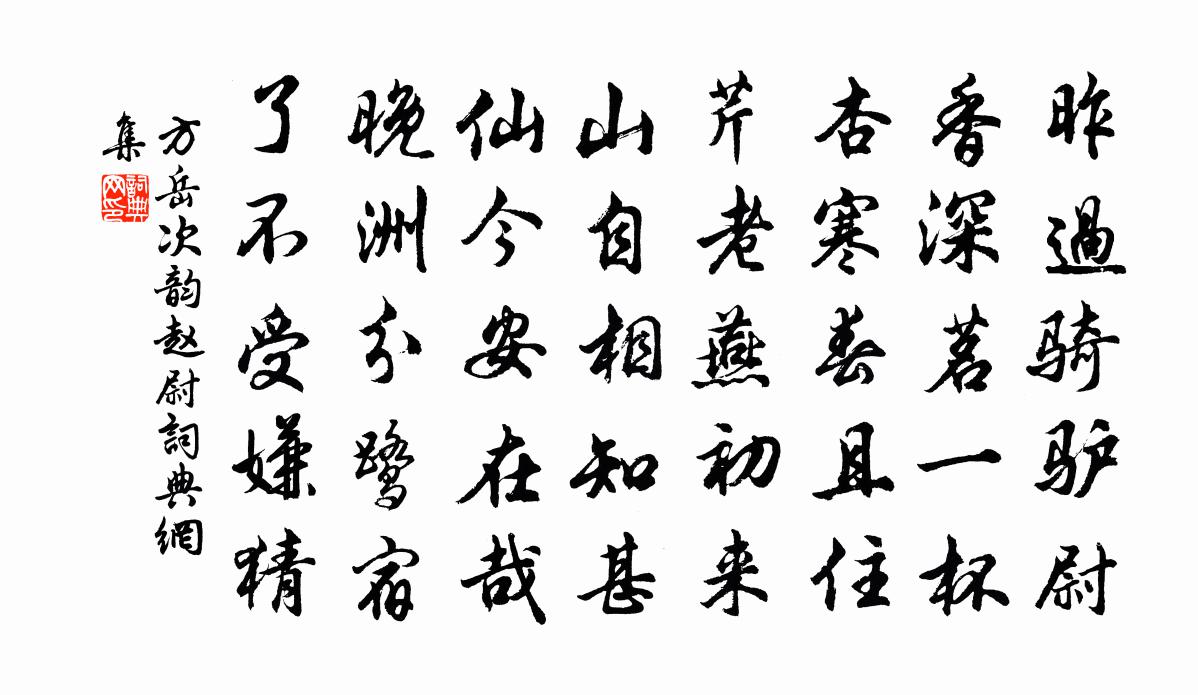 昨過骑驴尉
香深茗一杯
杏寒春且住
芹老燕初来
山自相知甚
仙今安在哉
晚洲分鹭宿
了不受嫌猜
方岳次韵赵尉詞典網
集
詞典
网印